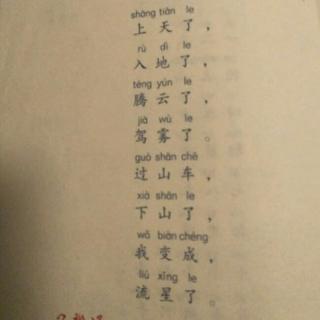 shàng tiān le
上天了，
rù dì le
入地了，
téng yún le
腾云了，
jià wù le
驾雾了。
guò shān chē
过山车，
xià shān le
下山了，
wǒ biàn chéng
我变成，
liú xīng le
流星了。